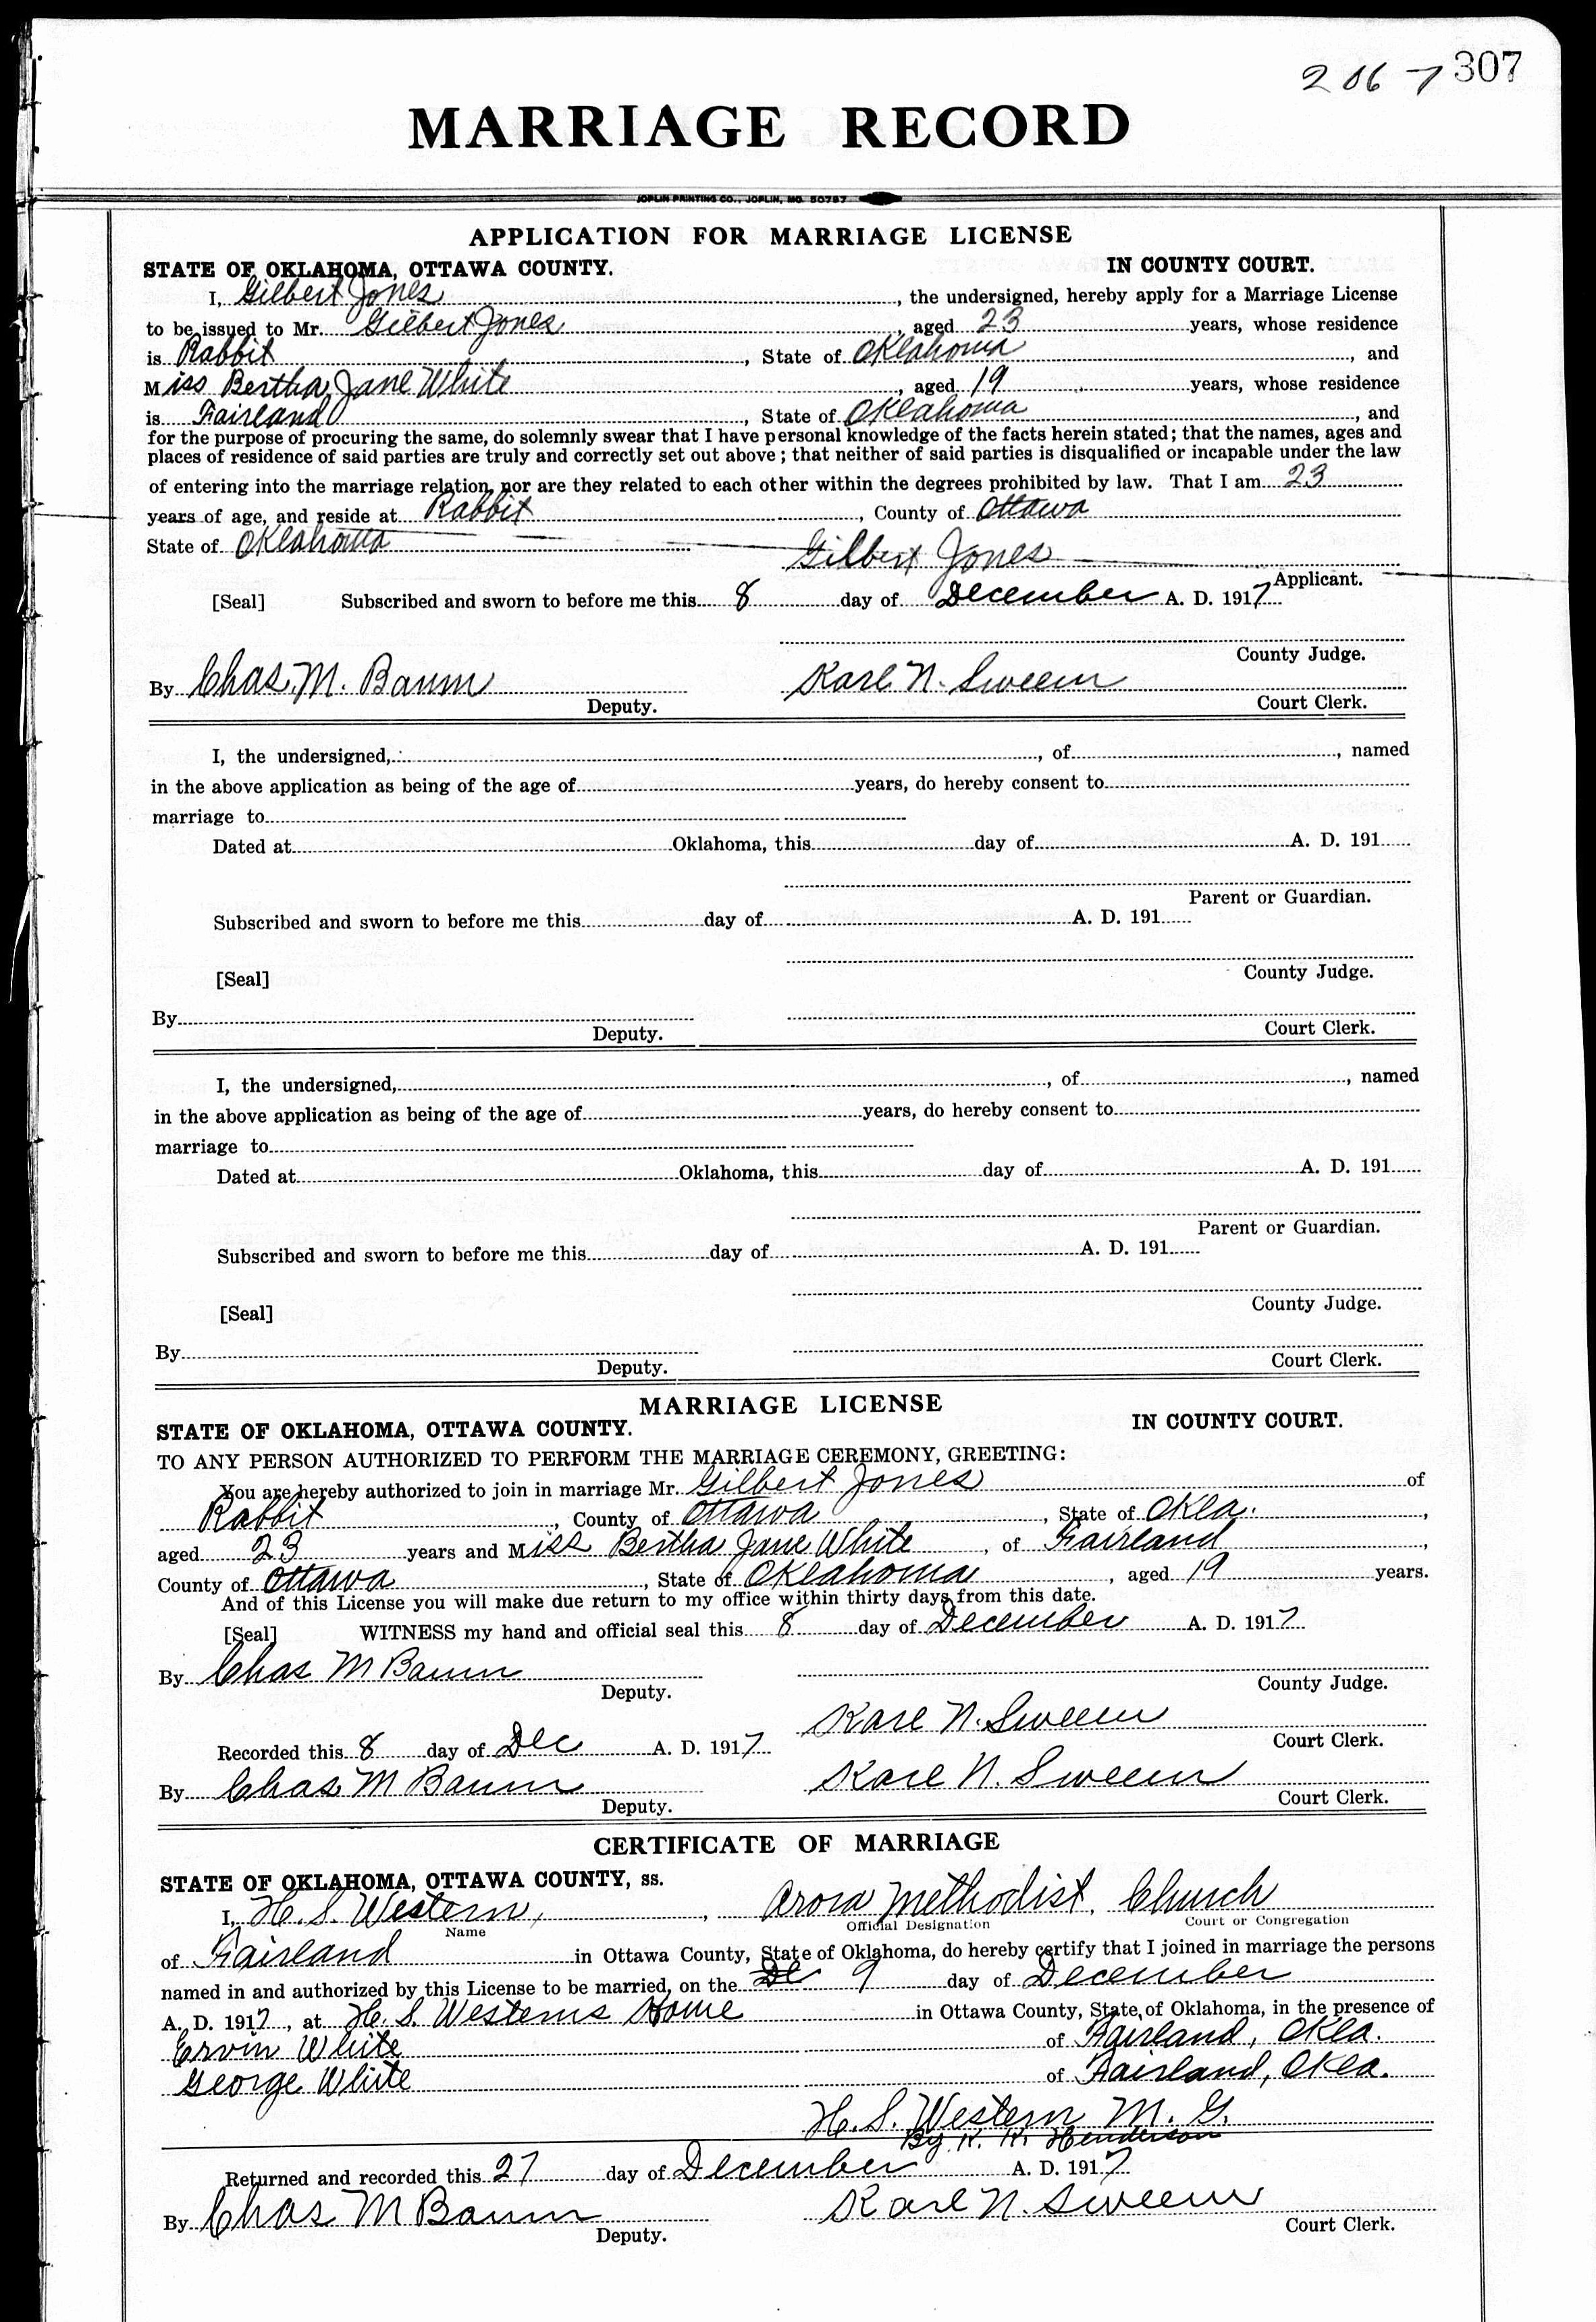 206-7 307
MARRIAGE RECORD
JOPLIN PRINTING CO., JOPLIN, MO. 50787
APPLICATION FOR MARRIAGE LICENSE
STATE OF OKLAHOMA, OTTAWA COUNTY. IN COUNTY COURT.
I, Gilbert Jones, the undersigned, hereby apply for a Marriage License
to be issued to Mr. Gilbert Jones, aged 23 years, whose residence
is Rabbit, State of Oklahoma, and
Miss Bertha Jane White, aged 19 years, whose residence
is Fairland, State of Oklahoma, and
for the purpose of procuring the same, do solemnly swear that I have personal knowledge of the facts herein stated; that the names, ages and
places of residence of said parties are truly and correctly set out above; that neither of said parties is disqualified or incapable under the law
of entering into the marriage relation, nor are they related to each other within the degrees prohibited by law. That I am 23
years of age, and reside at Rabbit, County of Ottawa
State of Oklahoma Gilbert Jones
Applicant.
[Seal] Subscribed and sworn to before me this 8 day of December A. D. 1917
County Judge.
By Chas. M. Baum Karl N. Sweem
Deputy. Court Clerk.
I, the undersigned, , of , named
in the above application as being of the age of years, do hereby consent to
marriage to
Dated at Oklahoma, this day of A. D. 191
Parent or Guardian.
Subscribed and sworn to before me this day of A. D. 191
[Seal] County Judge.
By
Deputy. Court Clerk.
I, the undersigned, , of , named
in the above application as being of the age of years, do hereby consent to
marriage to
Dated at Oklahoma, this day of A. D. 191
Parent or Guardian.
Subscribed and sworn to before me this day of A. D. 191
[Seal] County Judge.
By
Deputy. Court Clerk.
MARRIAGE LICENSE
STATE OF OKLAHOMA, OTTAWA COUNTY. IN COUNTY COURT.
TO ANY PERSON AUTHORIZED TO PERFORM THE MARRIAGE CEREMONY, GREETING:
You are hereby authorized to join in marriage Mr. Gilbert Jones of
Rabbit, County of Ottawa, State of Okla.,
aged 23 years and Miss Bertha Jane White, of Fairland,
County of Ottawa, State of Oklahoma, aged 19 years.
And of this License you will make due return to my office within thirty days from this date.
[Seal] WITNESS my hand and official seal this 8 day of December A. D. 1917
By Chas M Baum
Deputy. County Judge.
Karl N. Sweem
Recorded this 8 day of Dec A. D. 1917 Court Clerk.
By Chas M Baum Karl N. Sweem
Deputy. Court Clerk.
CERTIFICATE OF MARRIAGE
STATE OF OKLAHOMA, OTTAWA COUNTY, ss.
I, H. S. Western, , Arora Methodist, Church
Name Official Designation Court or Congregation
of Fairland in Ottawa County, State of Oklahoma, do hereby certify that I joined in marriage the persons
named in and authorized by this License to be married, on the De 9 day of December
A. D. 1917, at H. S. Westerns Home in Ottawa County, State of Oklahoma, in the presence of
Ervin White of Fairland, Okla.
George White of Fairland, Okla.
H. S. Western M. G.
By K. K. Henderson
Returned and recorded this 27 day of December A. D. 1917
By Chas M Baum Karl N. Sweem
Deputy. Court Clerk.